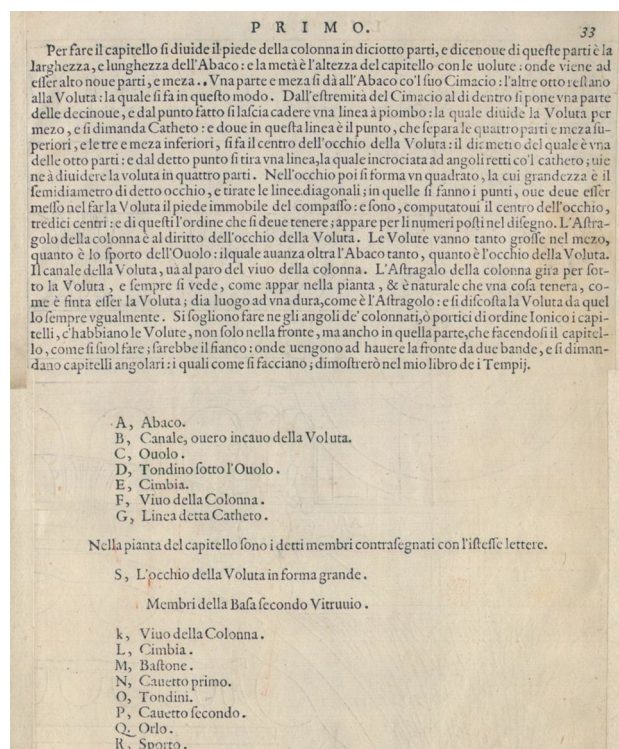 PRIMO.
33
Per fare il capitello ſi diuide il piede della colonna in diciotto parti, e dicenoue di queſte parti è la
larghezza, e lunghezza dell'Abaco: e la metà è l'altezza del capitello con le uolute: onde viene ad
eſſer alto noue parti, e meza.. Vna parte e meza ſi dà all'Abaco co'l ſuo Cimacio: l'altre otto reſtano
alla Voluta: la quale ſi fa in queſto modo. Dall'eſtremità del Cimacio al di dentro ſi pone vna parte
delle decinoue, e dal punto fatto ſi laſcia cadere vna linea à piombo: la quale diuide la Voluta per
mezo, e ſi dimanda Catheto: e doue in queſta linea è il punto, che ſepara le quattro parti e meza ſu-
periori, e le tre e meza inferiori, ſi fa il centro dell'occhio della Voluta: il diametro del quale è vna
delle otto parti: e dal detto punto ſi tira vna linea, la quale incrociata ad angoli retti co'l catheto; uie
ne à diuidere la voluta in quattro parti. Nell'occhio poi ſi forma vn quadrato, la cui grandezza è il
ſemidiametro di detto occhio, e tirate le linee diagonali; in quelle ſi fanno i punti, oue deue eſſer
meſſo nel far la Voluta il piede immobile del compaſſo: e ſono, computatoui il centro dell'occhio,
tredici centri: e di queſti l'ordine che ſi deue tenere; appare per li numeri poſti nel diſegno. L'Aſtra-
golo della colonna è al diritto dell'occhio della Voluta. Le Volute vanno tanto groſſe nel mezo,
quanto è lo ſporto dell'Ouolo: ilquale auanza oltra l'Abaco tanto, quanto è l'occhio della Voluta.
Il canale della Voluta, uà al paro del viuo della colonna. L'Aſtragalo della colonna gira per ſot-
to la Voluta, e ſempre ſi vede, come appar nella pianta, & è naturale che vna coſa tenera, co-
me è finta eſſer la Voluta; dia luogo ad vna dura, come è l'Aſtragolo: e ſi diſcoſta la Voluta da quel
lo ſempre vgualmente. Si ſogliono fare ne gli angoli de' colonnati, ò portici di ordine Ionico i capi-
telli, c'habbiano le Volute, non ſolo nella fronte, ma ancho in quella parte, che facendoſi il capitel-
lo, come ſi ſuol fare; ſarebbe il fianco: onde uengono ad hauere la fronte da due bande, e ſi diman-
dano capitelli angolari: i quali come ſi facciano; dimoſtrerò nel mio libro de i Tempij.
A, Abaco.
B, Canale, ouero incauo della Voluta.
C, Ouolo.
D, Tondino ſotto l'Ouolo.
E, Cimbia.
F, Viuo della Colonna.
G, Linea detta Catheto.
Nella pianta del capitello ſono i detti membri contraſegnati con l'iſteſſe lettere.
S, L'occhio della Voluta in forma grande.
Membri della Baſa ſecondo Vitruuio.
k, Viuo della Colonna.
L, Cimbia.
M, Baſtone.
N, Cauetto primo.
O, Tondini.
P, Cauetto ſecondo.
Q. Orlo.
R, Sporto.